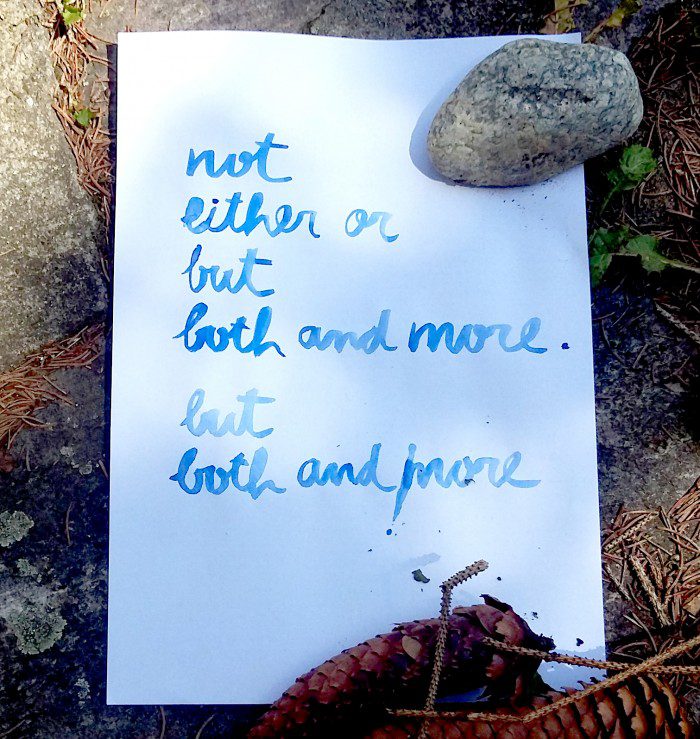 not
either or
but
both and more.
but
both and more